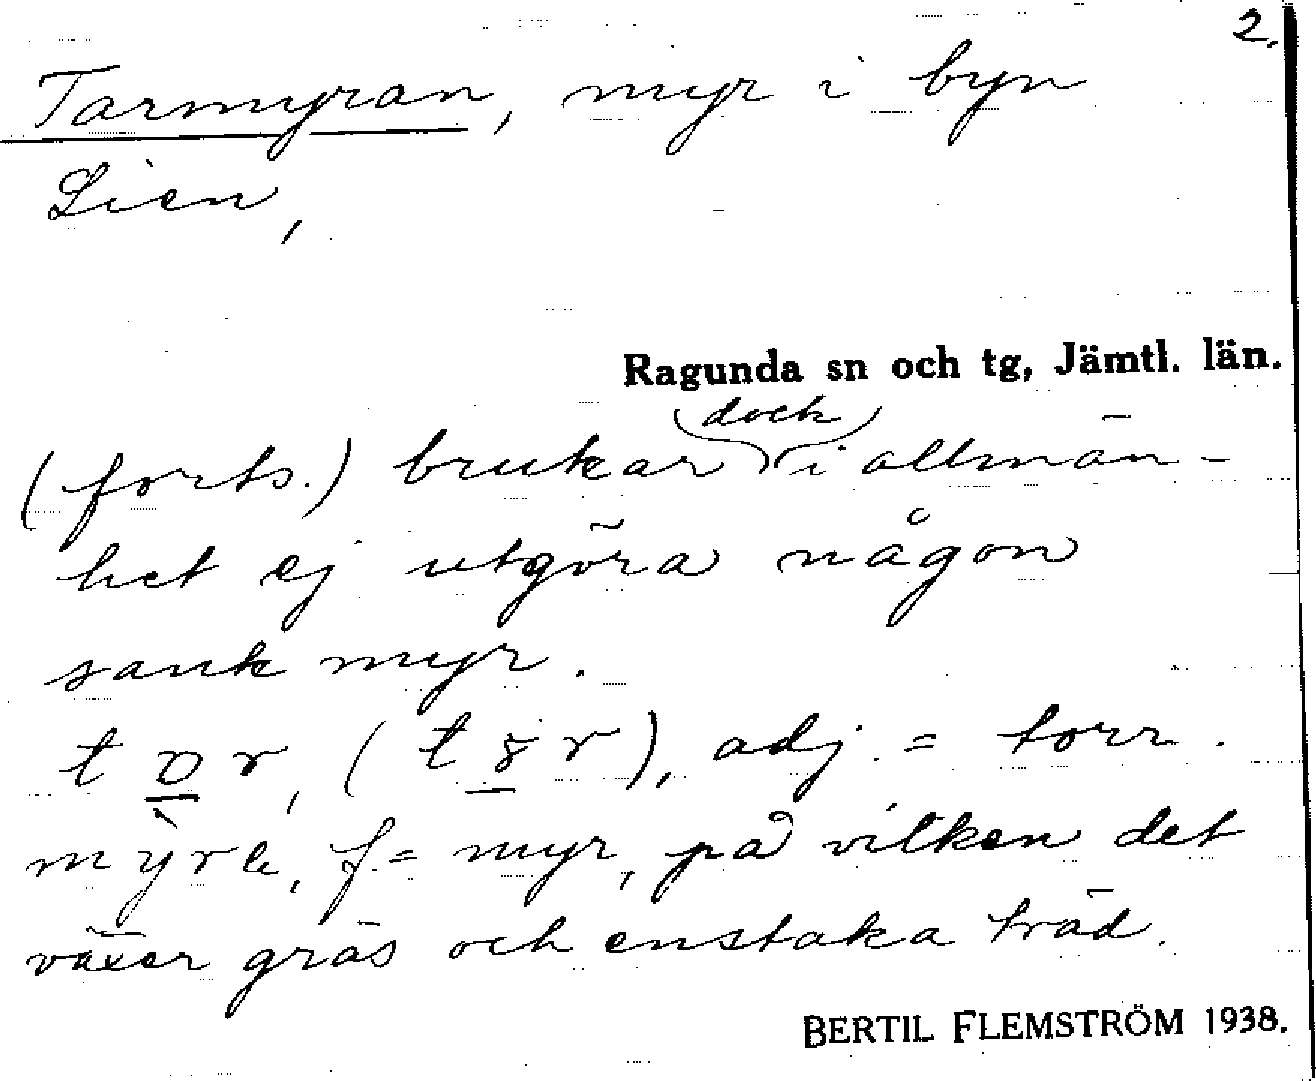 2.
Tarmyran, myr i byn
Lien,
Ragunda sn och tg, Jämtl. län.
(forts.) brukar dock i allmän-
het ej utgöra någon
sank myr.
adj. = torr.
f = myr, på vilken det
växer gräs och enstaka träd.
BERTIL FLEMSTRÖM 1938.